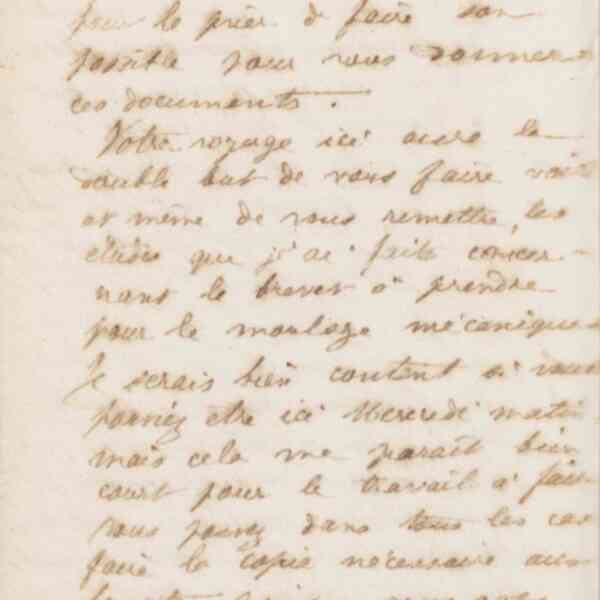 pour le prier de faire son
possible pour vous donner
ces documents.
Votre voyage ici aura le
double but de vous faire voir
et même de vous remettre, les
études que j'ai faites concer-
nant le brevet à prendre
pour le moulage mécanique
Je serais bien content si vous
pouviez être ici Mercredi matin
mais cela me parait bien
court pour le travail à faire
vous pouvez dans tous les cas
faire la copie nécessaire